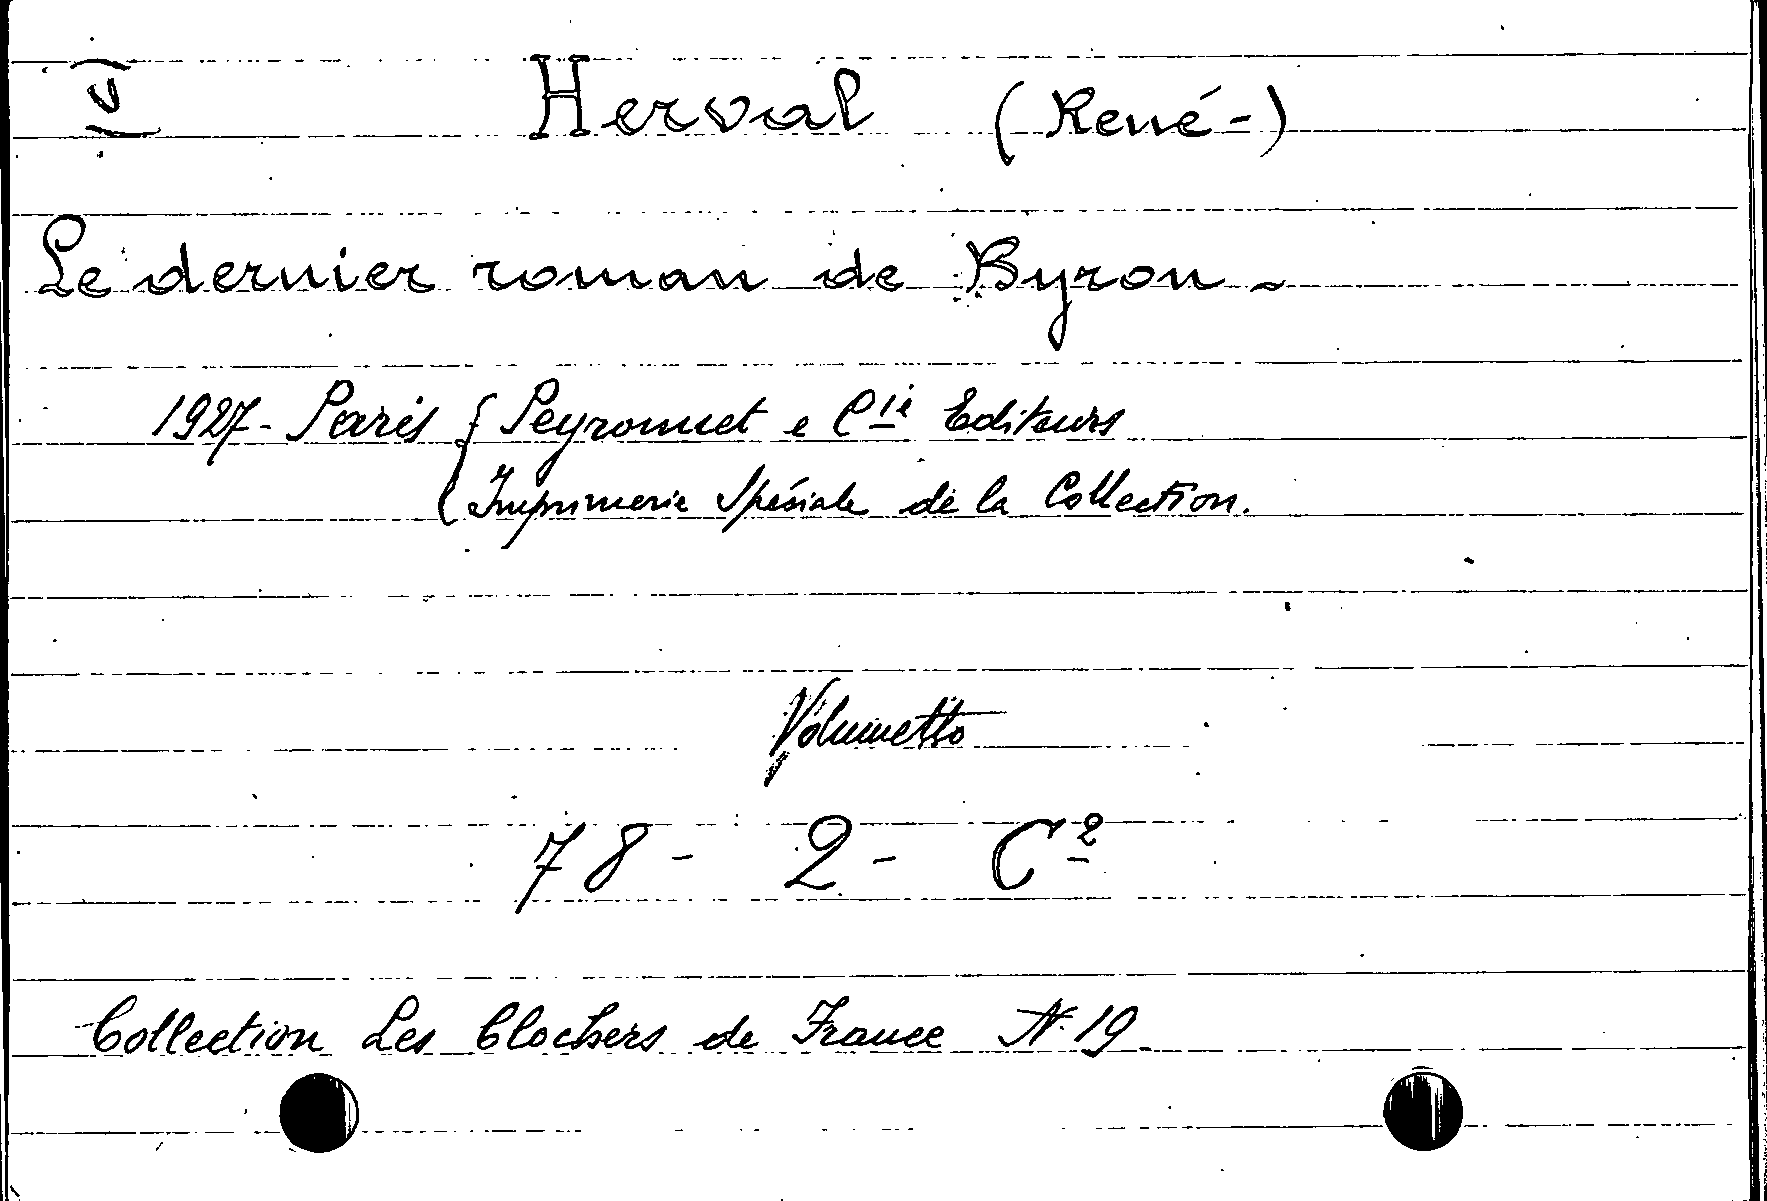 V Herval (René-)
Le dernier roman de Byron -
1927 - Paris { Peyronnet e Cie Editeurs
Imprimerie Spésiale de la Collection.
Volumetto
78 - 2 - C2
Collection Les Clochers de France N. 19